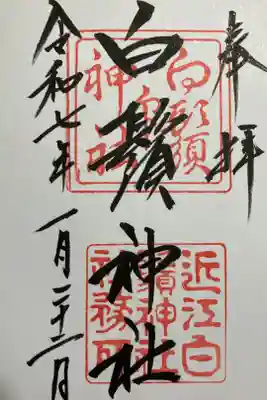 奉拝
白鬚神社
令和七年 一月二十二日
白鬚
神社
近江白
鬚神社
社務所